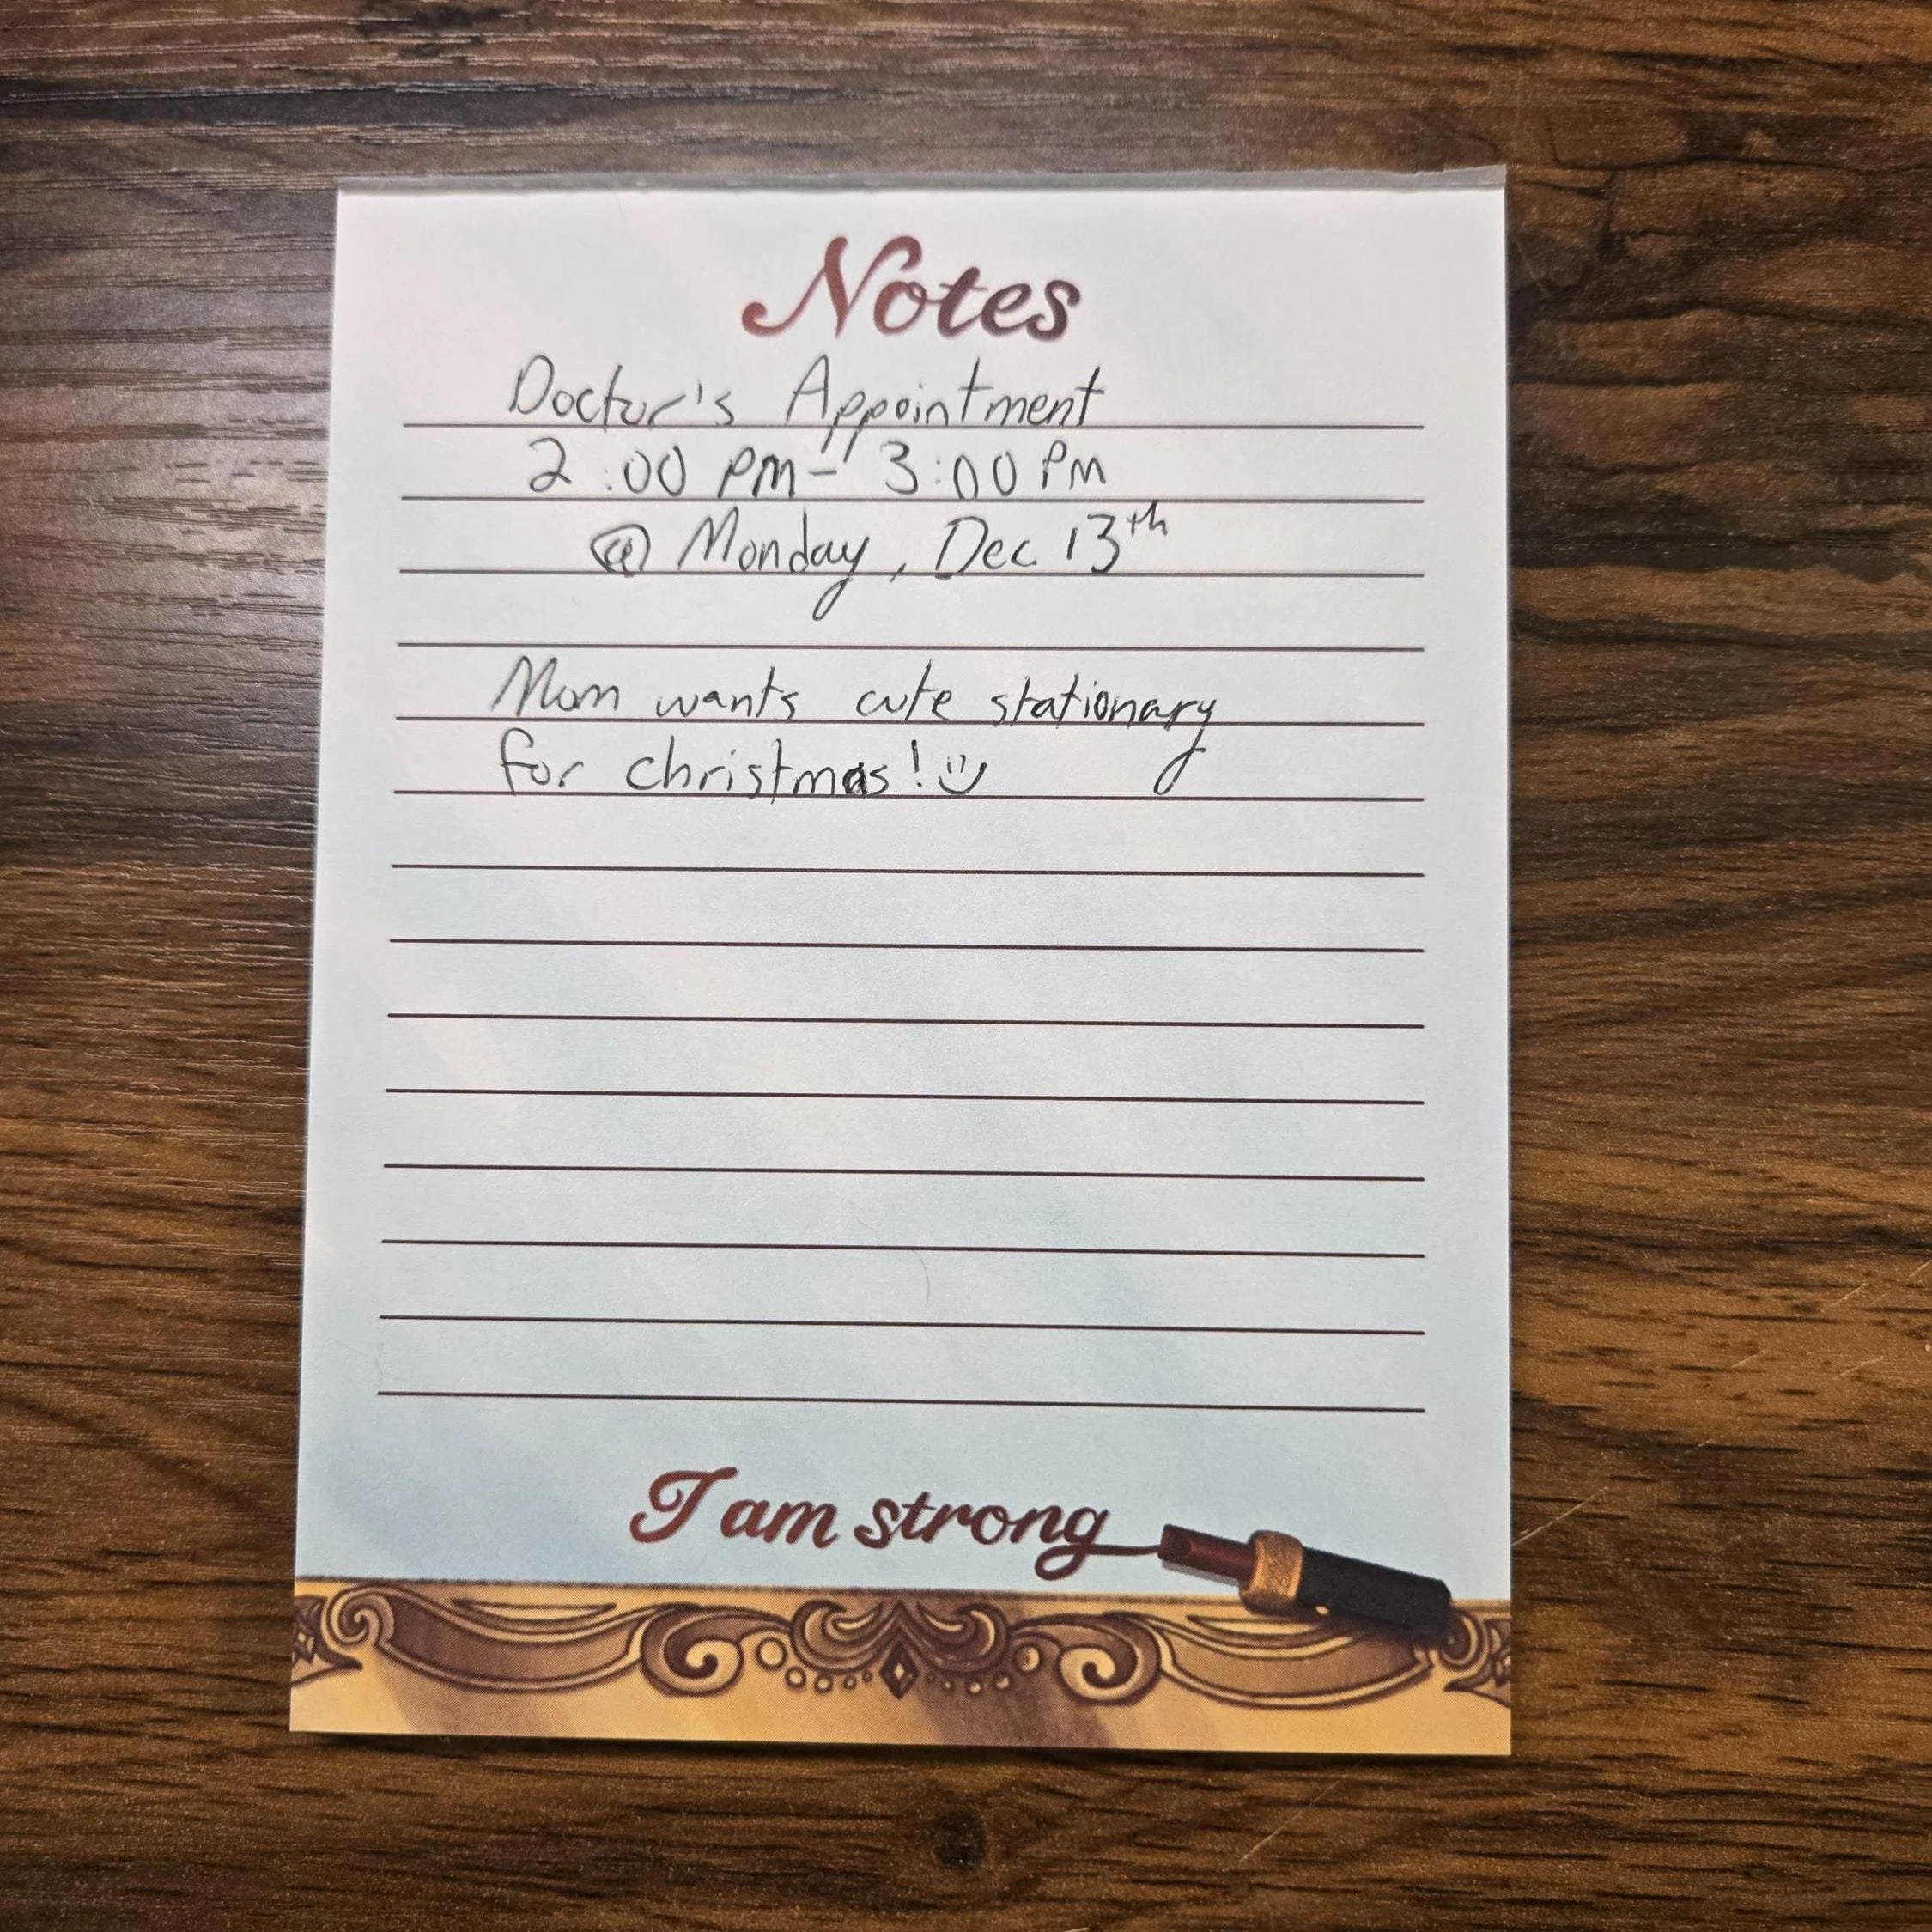 Notes
Doctor's Appointment
2:00 pm- 3:00 PM
@ Monday, Dec 13th
Mom wants cute stationary
for christmas! :)
I am strong